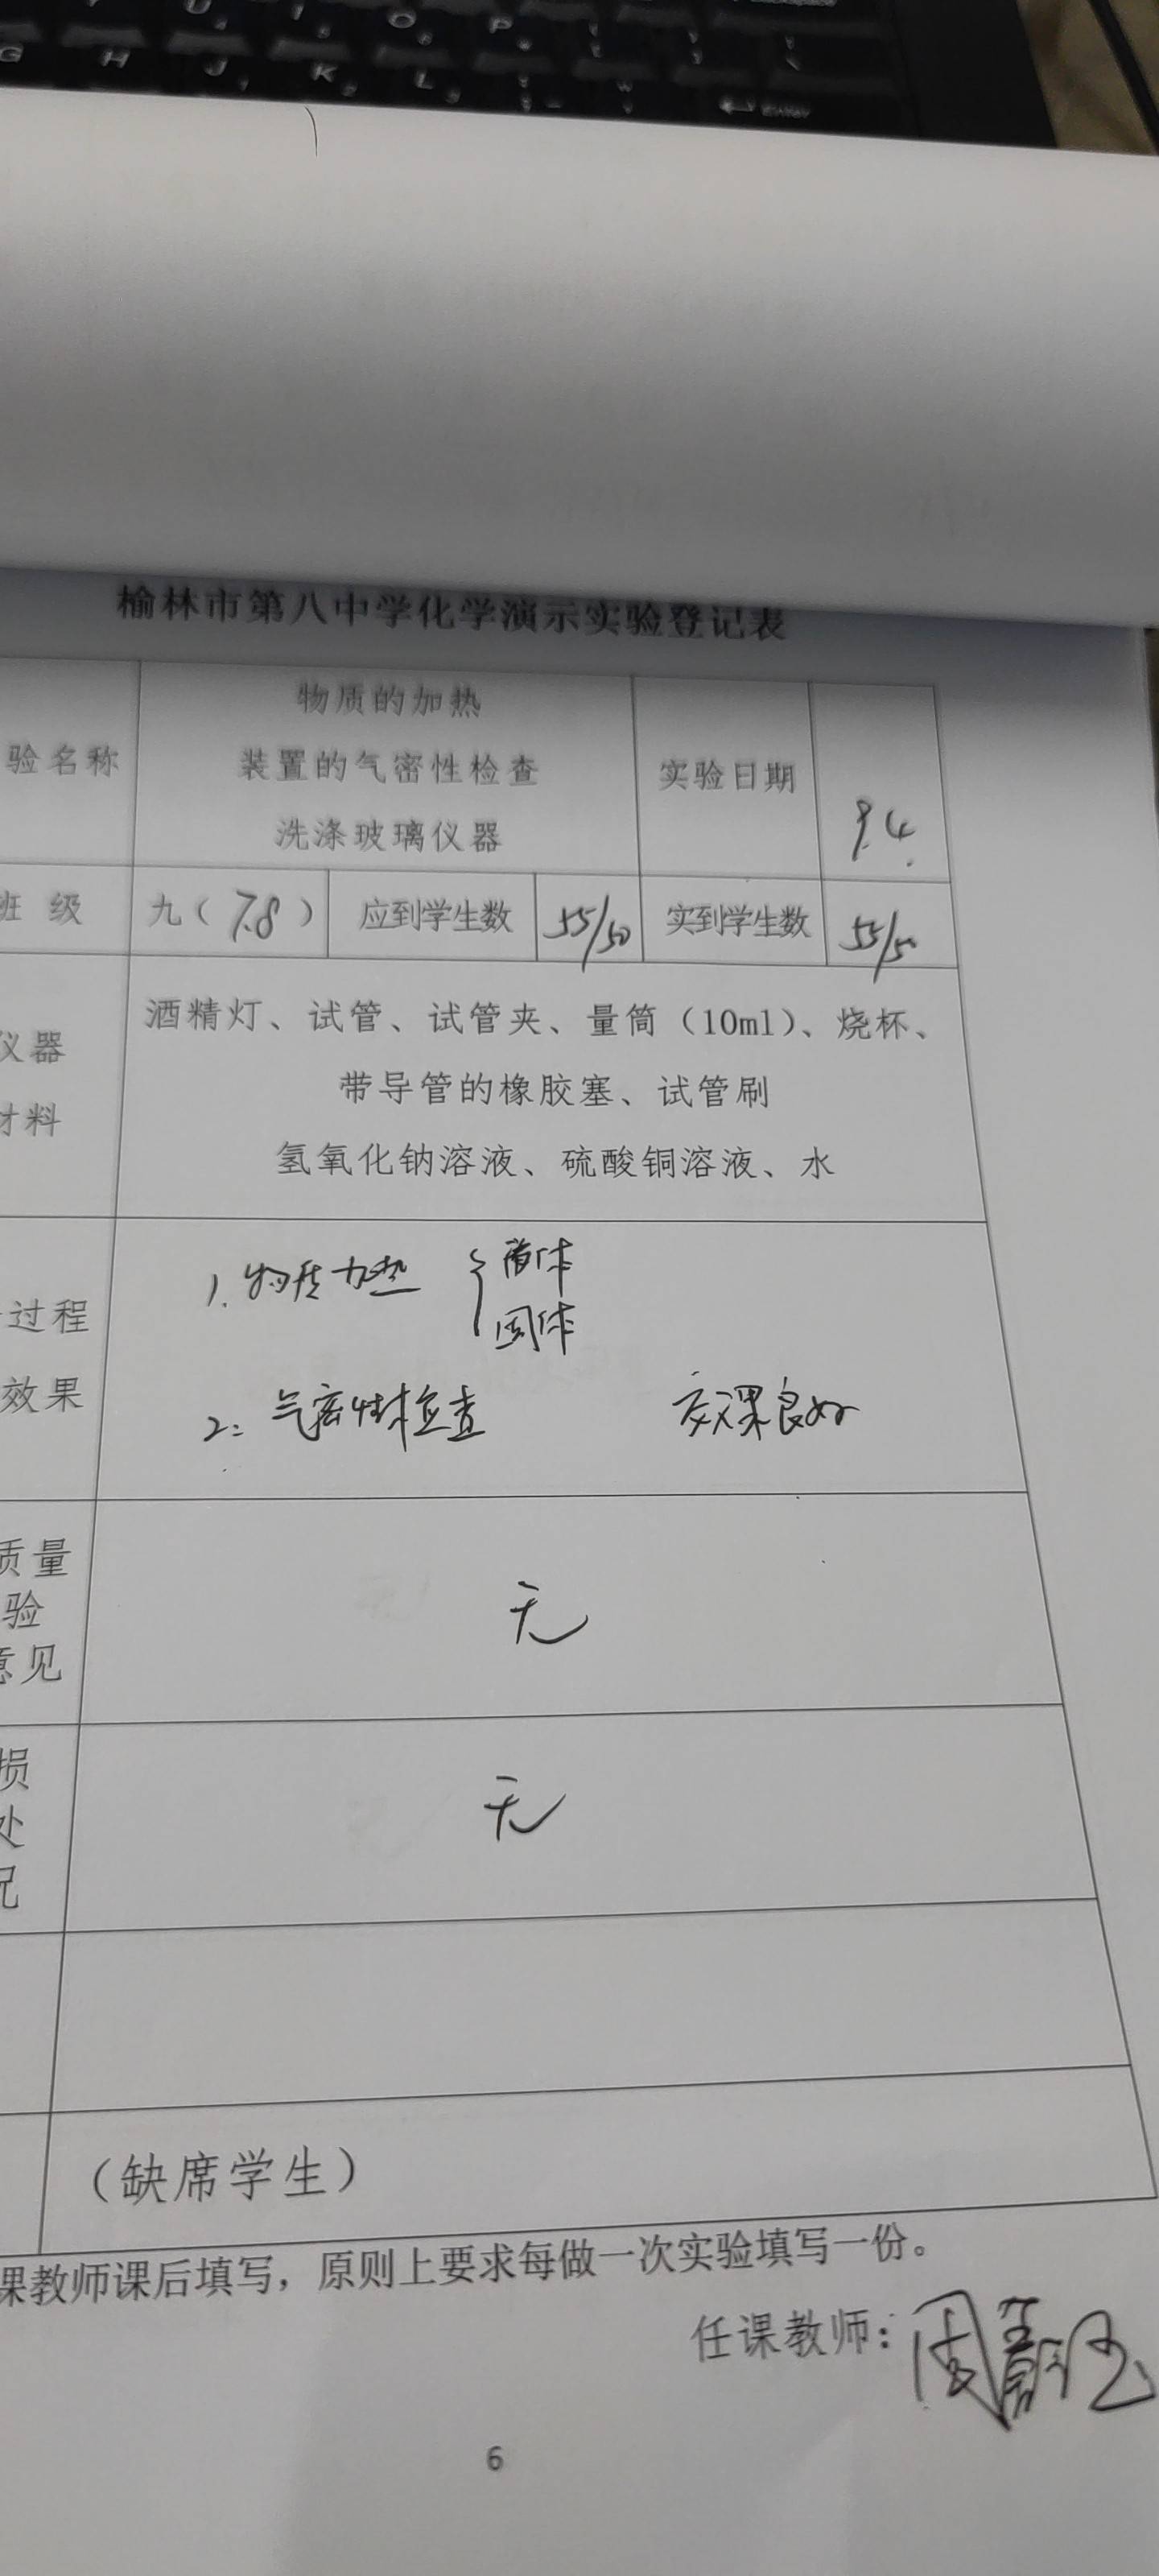 U I O P
G H J K L
Enter
榆林市第八中学化学演示实验登记表
物质的加热
验名称 装置的气密性检查 实验日期 9.4
洗涤玻璃仪器
班 级 九（7.8） 应到学生数 55/50 实到学生数 55/50
酒精灯、试管、试管夹、量筒（10ml）、烧杯、
仪器
带导管的橡胶塞、试管刷
材料
氢氧化钠溶液、硫酸铜溶液、水
1. 物质加热 { 液体
固体
过程
效果
2: 气密性检查 效果良好
质量
验 无
意见
损
处 无
况
（缺席学生）
课教师课后填写，原则上要求每做一次实验填写一份。
任课教师：周
6